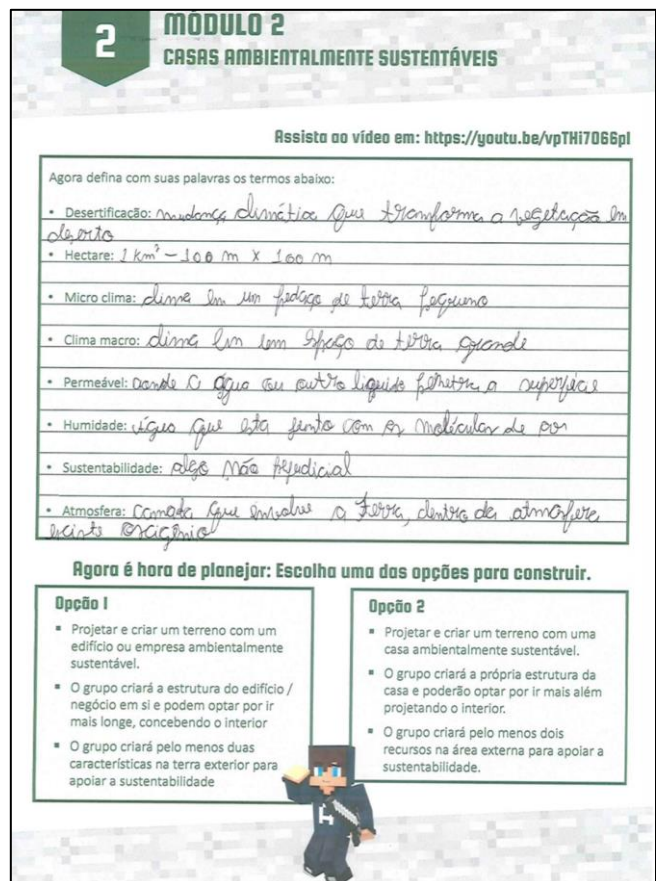 2
MÓDULO 2
CASAS AMBIENTALMENTE SUSTENTÁVEIS
Assista ao vídeo em: https://youtu.be/vpTHi7O66pI
Agora defina com suas palavras os termos abaixo:
• Desertificação: mudança climática que transforma a vegetação em
deserto
• Hectare: 1 km² - 100 m x 100 m
• Micro clima: clima em um pedaço de terra pequeno
• Clima macro: clima em um espaço de terra grande
• Permeável: aonde a água ou outro liquido penetra a superfície
• Humidade: água que esta junto com as moléculas de
• Sustentabilidade: algo não prejudicial
• Atmosfera: camada que envolve a Terra, dentro da atmosfera
existe oxigênio
Agora é hora de planejar: Escolha uma das opções para construir.
Opção 1
▪ Projetar e criar um terreno com um
edifício ou empresa ambientalmente
sustentável.
▪ O grupo criará a estrutura do edifício /
negócio em si e podem optar por ir
mais longe, concebendo o interior
▪ O grupo criará pelo menos duas
características na terra exterior para
apoiar a sustentabilidade
Opção 2
▪ Projetar e criar um terreno com uma
casa ambientalmente sustentável.
▪ O grupo criará a própria estrutura da
casa e poderão optar por ir mais além
projetando o interior.
▪ O grupo criará pelo menos dois
recursos na área externa para apoiar a
sustentabilidade.
H